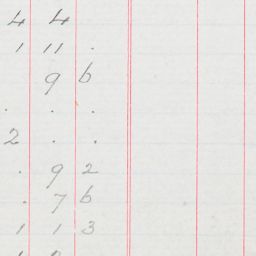 4 4
1 11 .
9 6
. . .
2 . .
. 9 2
. 7 6
1 1 3